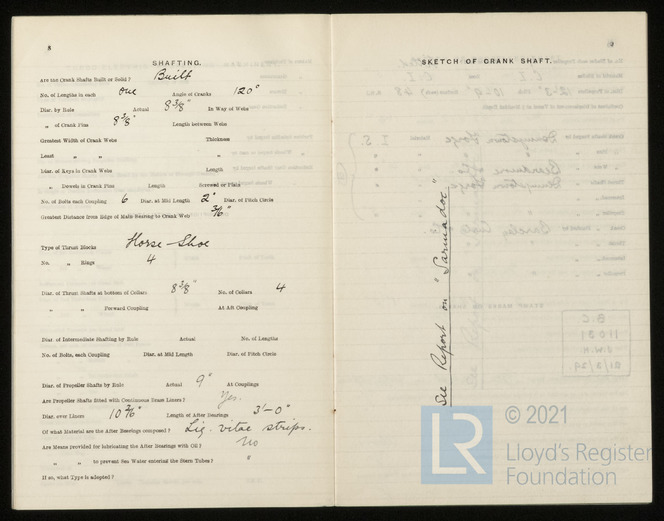 8
SHAFTING.
Are the Crank Shafts Built or Solid? Built
No. of Lengths in each one Angle of Cranks 120°
Diar. by Rule Actual 8 3/8" In Way of Webs
„ of Crank Pins 8 3/8" Length between Webs
Greatest Width of Crank Webs Thickness
Least „ „ „
Diar. of Keys in Crank Webs Length
„ Dowels in Crank Pins Length Screwed or Plain
No. of Bolts each Coupling 6 Diar. at Mid Length 2" Diar. of Pitch Circle
Greatest Distance from Edge of Main Bearing to Crank Web
Type of Thrust Blocks Horse-Shoe
No. „ Rings 4
Diar. of Thrust Shafts at bottom of Collars 8 3/8" No. of Collars 4
„ „ Forward Coupling At Aft Coupling
Diar. of Intermediate Shafting by Rule Actual No. of Lengths
No. of Bolts, each Coupling Diar. at Mid Length Diar. of Pitch Circle
Diar. of Propeller Shafts by Rule Actual 9" At Couplings
Are Propeller Shafts fitted with Continuous Brass Liners? Yes.
Diar. over Liners Length of After Bearings 3'-0"
Of what Material are the After Bearings composed? Lig. vitae strips.
Are Means provided for lubricating the After Bearings with Oil? No
„ „ to prevent Sea Water entering the Stern Tubes? "
If so, what Type is adopted?
9
SKETCH OF CRANK SHAFT.
See Report on "Sarmadoc."
© 2021
LR
Lloyd's Register
Foundation